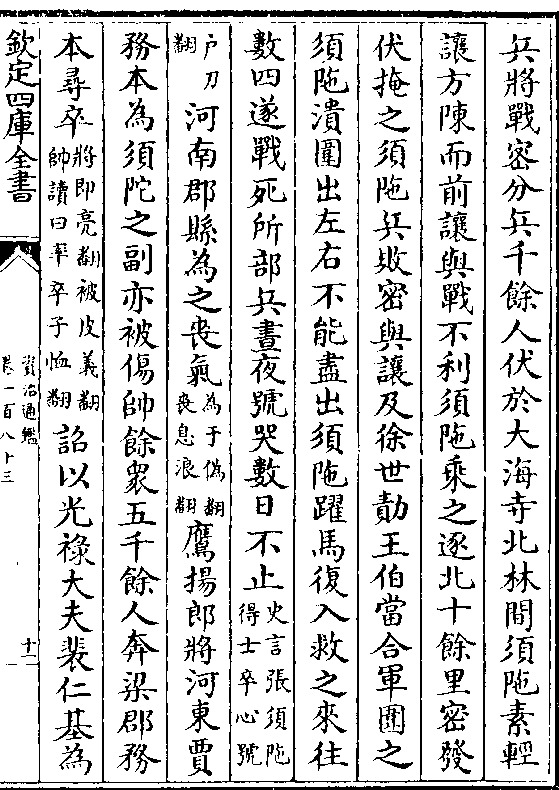 兵將戰密分兵千餘人伏於大海寺北林間須陁素輕
讓方陳而前讓與戰不利須陁乘之逐北十餘里密發
伏掩之須陁兵敗密與讓及徐世勣王伯當合軍圍之
須陁潰圍出左右不能盡出須陁躍馬復入救之來往
數四遂戰死所部兵晝夜號哭數日不止史言張須陁得士卒心號
户刀翻河南郡縣為之喪氣為于偽翻喪息浪翻鷹揚郎將河東賈
務本為須陀之副亦被傷帥餘衆五千餘人奔梁郡務
本尋卒將即亮翻被皮義翻帥讀曰率卒子恤翻詔以光祿大夫裴仁基為
欽定四庫全書
資治通鑑
卷一百八十三
十二